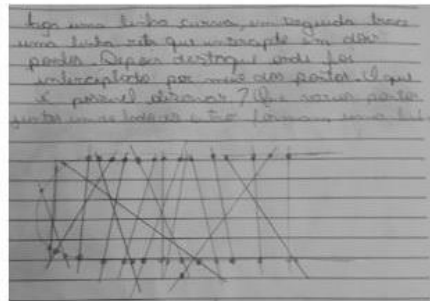 faça uma linha curva, em seguida trace
uma linha reta que intercepte em dois
pontos. Depois destaque onde foi
interceptado por meio dos pontos. O que
é possível observar? Que vários pontos
juntos